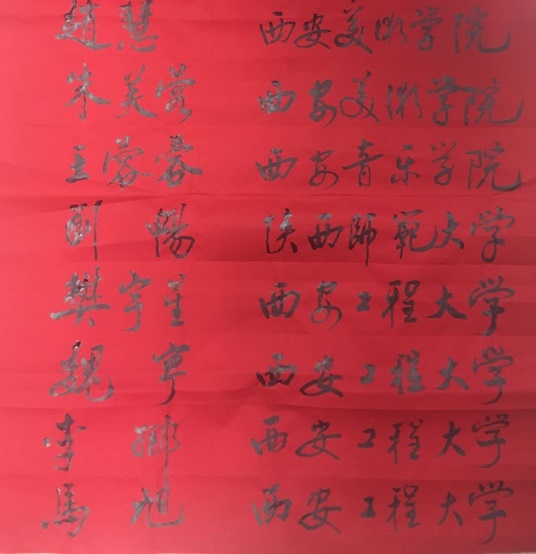 趙慧 西安美術学院
朱美蒙 西安美術学院
王蓉蓉 西安音乐学院
劉暢 陕西師範大学
樊宇堇 西安工程大学
魏寧 西安工程大学
李娜 西安工程大学
馬旭 西安工程大学